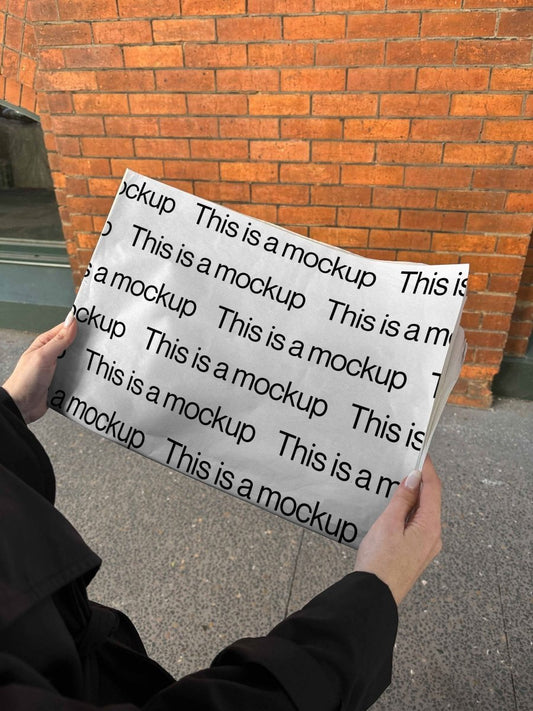 ockup This is a mockup This is
p This is a mockup This is a m
s a mockup This is a mockup T
ockup This is a mockup This is
p This is a mockup This is a m
a mockup This is a mockup